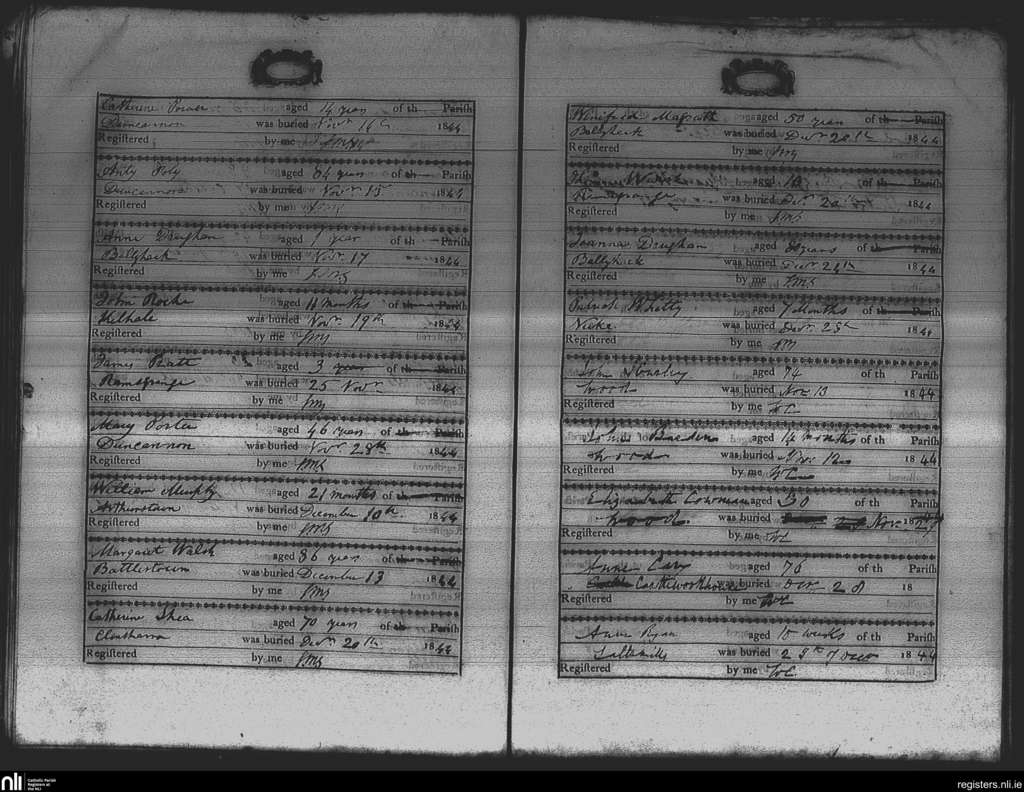 Catherine Power aged 14 years of th Parish
Duncannon was buried Novr 14th 1844
Registered by me
aged 84 years of th Parish
Duncannon was buried Novr 15 1844
Registered by me
Anne Drughan aged 1 year of th Parish
Ballyhack was buried Novr 17 1844
Registered by me
John Roche aged 11 months of th Parish
Kilhale was buried Novr 19th 1844
Registered by me
James aged 3 years of th Parish
Ramsgrange was buried 25 Novr 1844
Registered by me
Mary Porter aged 46 years of th Parish
Duncannon was buried Novr 28th 1844
Registered by me
William Murphy aged 21 months of th Parish
Arthurstown was buried December 10th 1844
Registered by me
Margaret Walsh aged 86 years of th Parish
Battlestown was buried December 13 1844
Registered by me
Catherine Shea aged 70 years of th Parish
was buried Decr 20th 1844
Registered by me
Winifred Magrath aged 50 years of th Parish
Ballyhack was buried Decr 20th 1844
Registered by me
Thomas Walsh aged of th Parish
Ramsgrange was buried Decr 1844
Registered by me
Joanna Drughan aged years of th Parish
Ballyhack was buried Decr 24th 1844
Registered by me
Patrick Whitty aged 7 Months of th Parish
Nuke was buried Decr 25th 1844
Registered by me
John aged 74 of th Parish
Wood was buried Nov 13 1844
Registered by me WC
aged 14 months of th Parish
Wood was buried Nov 12 1844
Registered by me WC
Elizabeth Cowman aged 50 of th Parish
was buried Nov 18
Registered by me WC
Anne aged 76 of th Parish
was buried 28 18
Registered by me WC
Anne Ryan aged 10 weeks of th Parish
Saltmills was buried 29th of Decr 1844
Registered by me WC
nli
Catholic Parish
Registers at
the NLI
registers.nli.ie